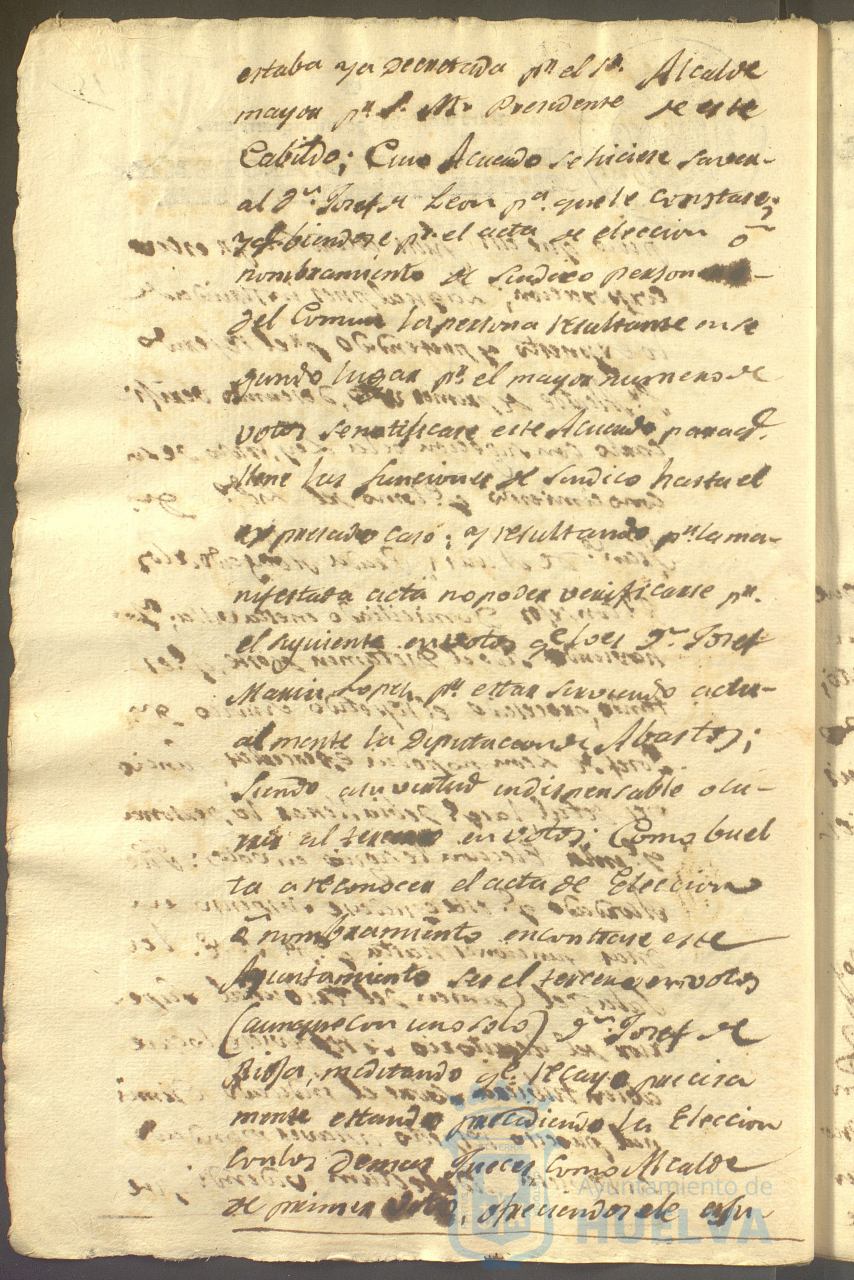 estaba ya decretada pr. el Sr. Alcalde
mayor pr. S. M. Presidente de este
Cabildo; Cuio Acuerdo se hiciese saver
al Dn. Josef de Leon pa. que le constase;
y debiendose pr. el acta de eleccion ó
nombramiento de Sindico personero
del Comun la persona resultante en se
gundo lugar pr. el mayor numero de
votos se notificase este Acuerdo para q.
llene las funciones de Sindico hasta el
expresado caso; y resultando pr. la ma-
nifestada acta no poder verificarse pr.
el siguiente en votos qe. lo es Dn. Josef
Maria Lopez pr. estar sirviendo actu-
almente la Diputacion de Abastos;
Siendo a su virtud indispensable ocu-
rrir al tercero en votos: Como buel
ta a reconocer el acta de Eleccion
ó nombramiento encontrase este
Ayuntamiento ser el tercero en votos
(aunque con uno solo) Dn. Josef de
Rioja, meditando qe. recayo precisa
mente estando presidiendo la Eleccion
con los demas Jueces como Alcalde
de primer voto, ofreciendosele a su
Ayuntamiento de
HUELVA